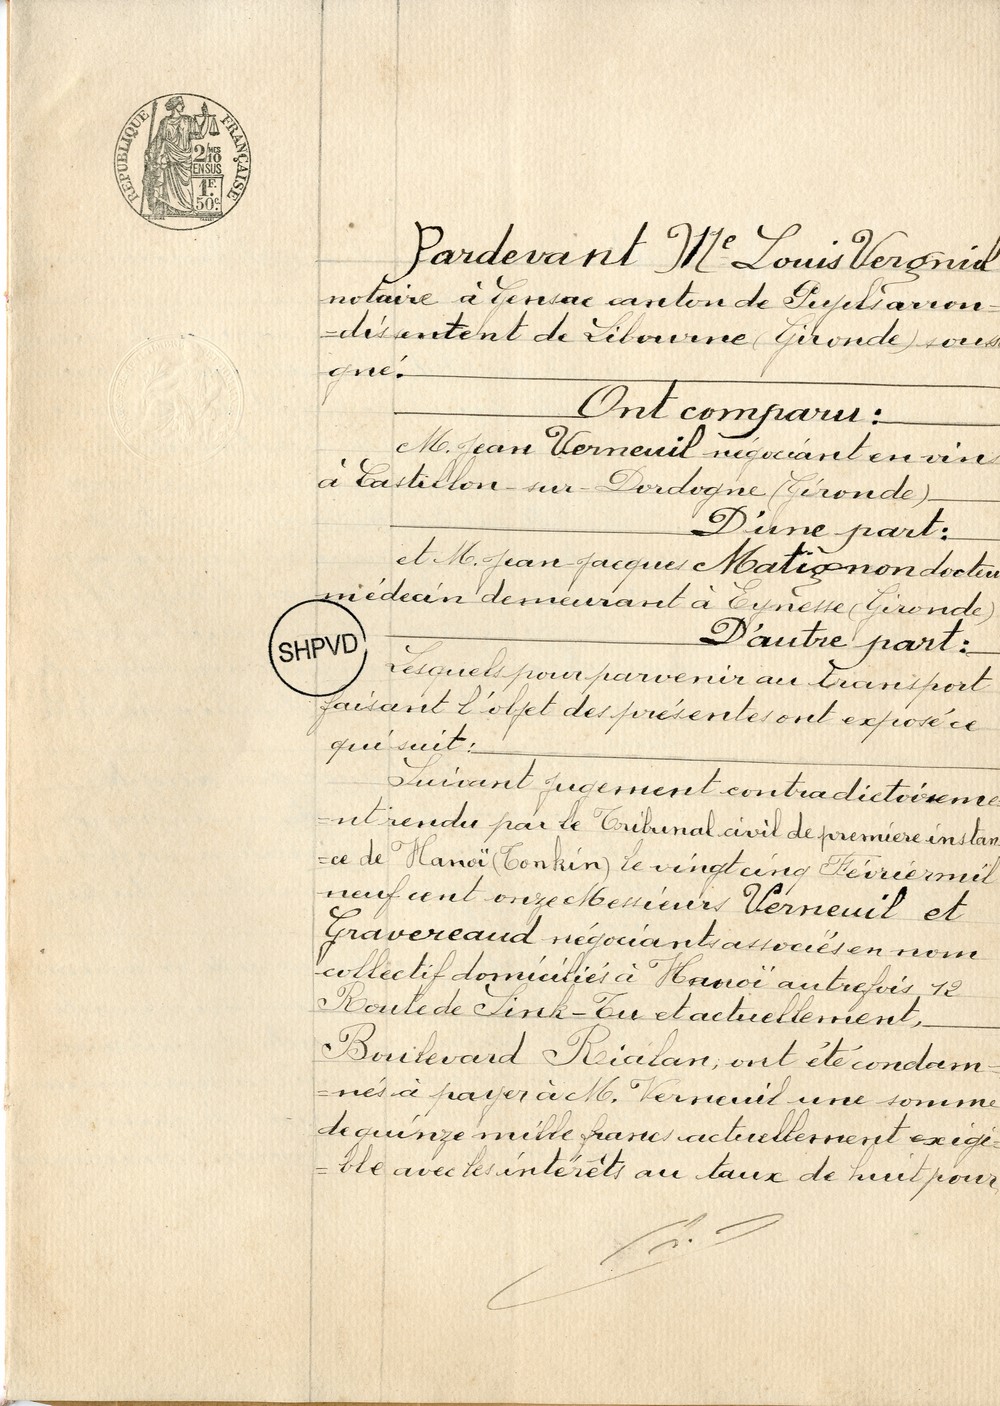 RÉPUBLIQUE FRANÇAISE
2/10mes
EN SUS
1F.
50c.
Pardevant Me Louis Vergniol
notaire à Gensac canton de Pujols arron-
=dissentent de Libourne (Gironde) sous
gné.
Ont comparu:
M. Jean Verneuil négociant en vins
à Castillon-sur-Dordogne (Gironde)
D'une part:
et M. Jean Jacques Matignon docteu
médecin demeurant à Eynesse (Gironde)
D'autre part:
SHPVD
Lesquels pour parvenir au transport
faisant l'objet des présentes ont exposé ce
qui suit:
Suivant jugement contradictoireme
=nt rendu par le Tribunal civil de premiere instan
=ce de Hanoï (Tonkin) le vingt cinq Février mil
neuf cent onze Messieurs Verneuil et
Gravereaud négociants associés en nom
collectif domiciliés à Hanoï autrefois 12
Route de Sink-Tu et actuellement,
Boulevard Rialan, ont été condam-
=nés à payer à M. Verneuil une somme
de quinze mille francs actuellement exigi-
=ble avec les intérêts au taux de huit pour